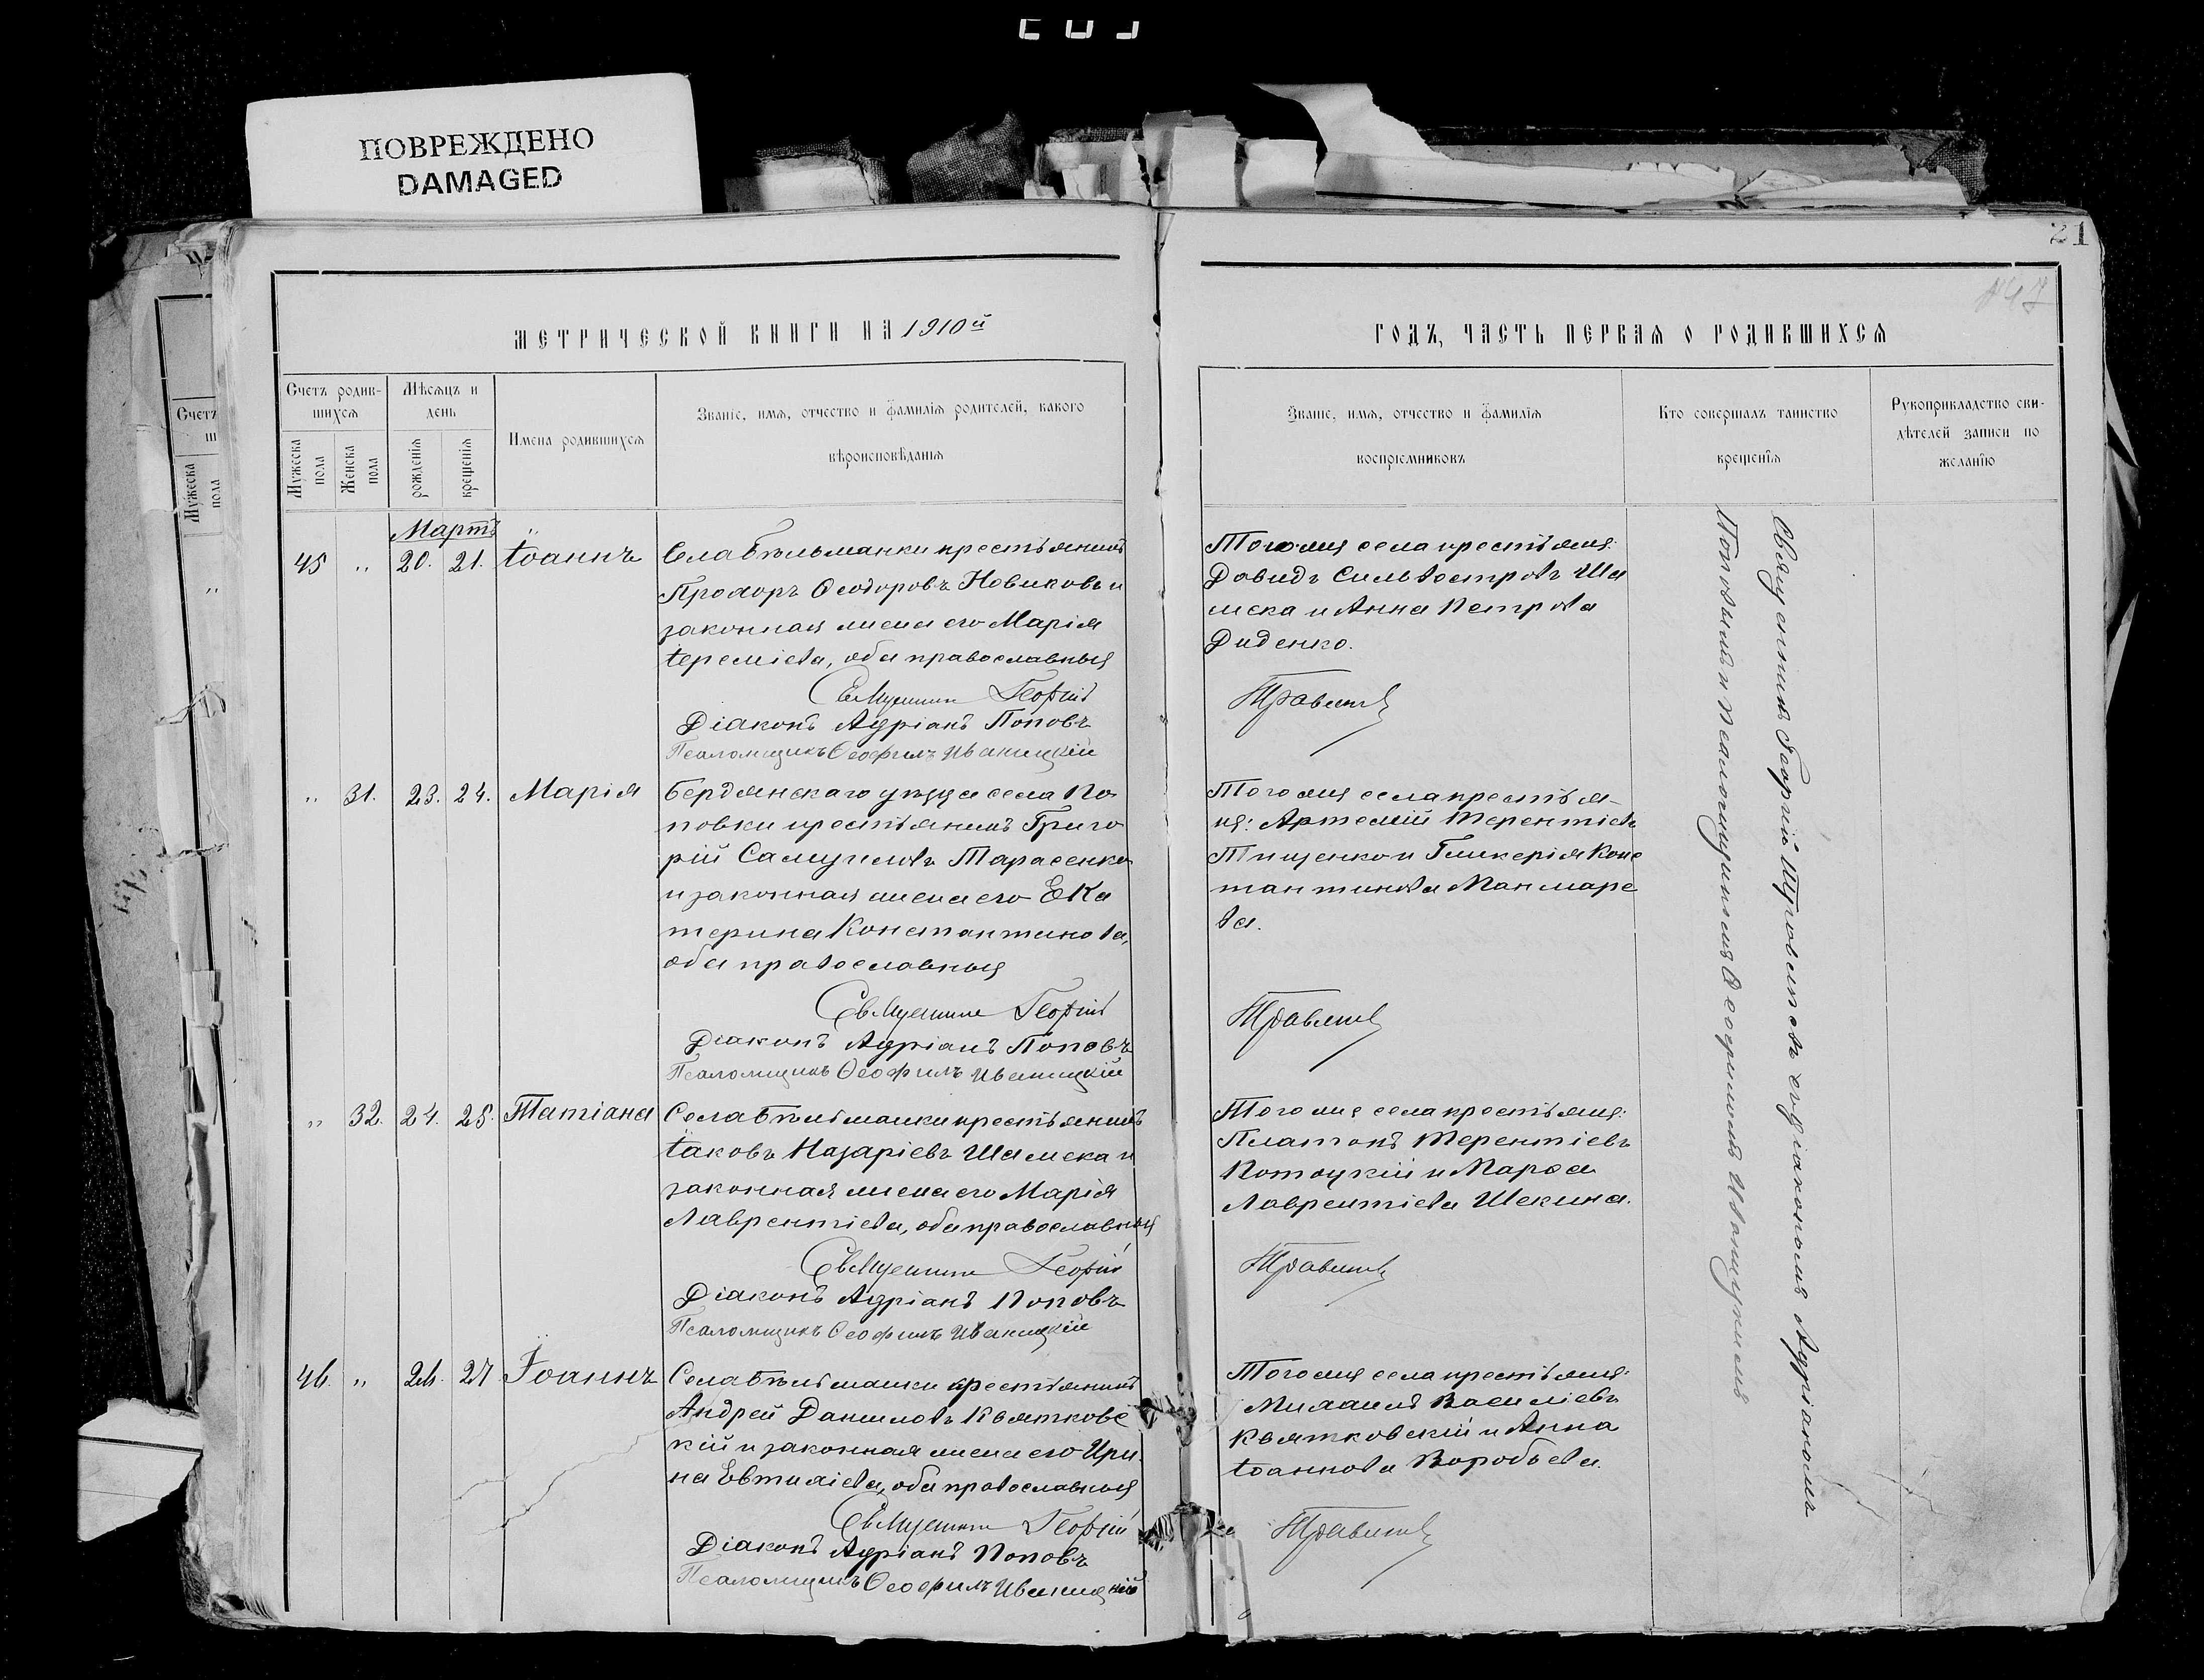 ПОВРЕЖДЕНО
DAMAGED
21
МЕТРИЧЕСКОЙ КНИГИ НА 1910й
ГОДЪ, ЧАСТЬ ПЕРВАЯ О РОДИВШИХСЯ
Счетъ родив-
шихся
Мѣсяцъ и
день
Мужеска
пола
Женска
пола
рожденія
крещенія
Имена родившихся
Званіе, имя, отчество и фамилія родителей, какого
вѣроисповѣданія
Званіе, имя, отчество и фамилія
воспріемниковъ
Кто совершалъ таинство
крещенія
Рукоприкладство сви-
дѣтелей записи по
желанію
Счетъ
ш
Мужеска
пола
Мартъ
45 " 20. 21. Іоаннъ
Села Бѣльманки крестьянинъ
Прохоръ Ѳеодоровъ Новиковъ и
законная жена его Марія
Іереміева, оба православныя
Священникъ Георгій
Діаконъ Адріанъ Поповъ
Псаломщикъ Ѳеофилъ Иваницкій
Того же села крестьяне:
Давидъ Сильвестровъ Ша
мска и Анна Петрова
Диденко.
Травлевъ
" 31. 23. 24. Марія
Бердянскаго уѣзда села По
повки крестьянинъ Григо
рій Самуиловъ Тарасенко
и законная жена его Ека
терина Константинова,
оба православныя
Священникъ Георгій
Діаконъ Адріанъ Поповъ
Псаломщикъ Ѳеофилъ Иваницкій
Того же села крестья-
не: Артемій Терентіевъ
Тищенко и Гликерія Конс
тантинова
ва.
Травлевъ
" 32. 24. 25. Татіана
Села Бѣльманки крестьянинъ
Іаковъ Назаріевъ Шамска и
законная жена его Марія
Лаврентіева, оба православныя
Священникъ Георгій
Діаконъ Адріанъ Поповъ
Псаломщикъ Ѳеофилъ Иваницкій
Того же села крестьяне:
Платонъ Терентіевъ
Потоцкій и Марѳа
Лаврентіева Шекина.
Травлевъ
46. " 26. 27 Іоаннъ
Села Бѣльманки крестьянинъ
Андрей Даниловъ Квятковс
кій и законная жена его Ири
на Евтихіева, оба православныя
Священникъ Георгій
Діаконъ Адріанъ Поповъ
Псаломщикъ Ѳеофилъ Иваницкій
Того же села крестьяне:
Михаилъ Василіевъ
Квятковскій и Анна
Іоаннова Воробьева.
Травлевъ
Священникъ Георгій Травлевъ съ діакономъ Адріаномъ
Поповымъ и псаломщикомъ Ѳеофиломъ Иваницкимъ